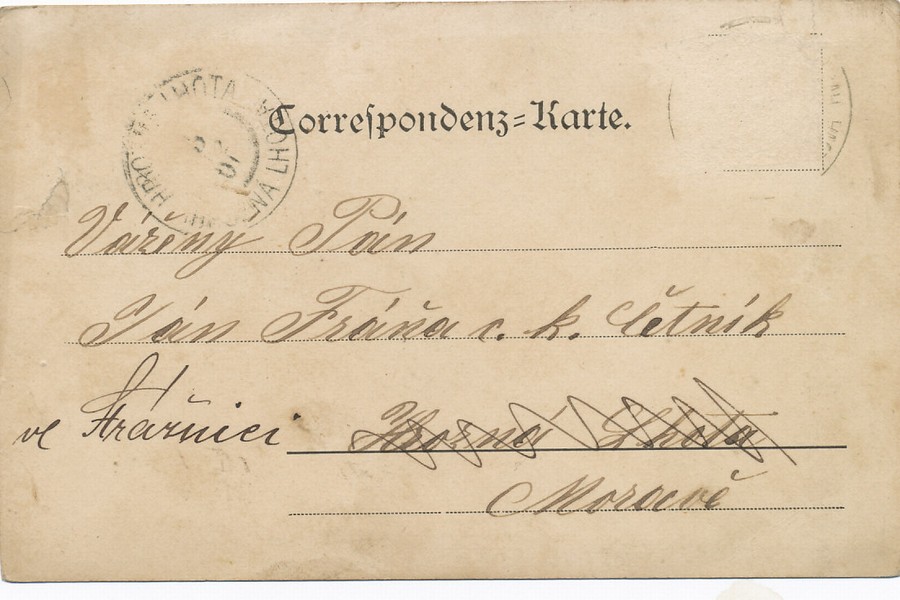 Correspondenz-Karte.
LHOTA
LHOTA
01
Vážený Pán
Ján Fráňa c. k. četník
ve Strážnici Hrozná Lhota
Moravě